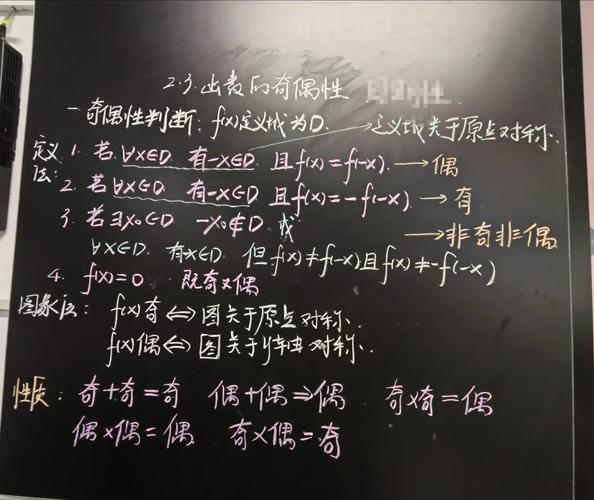 2.3 函数的奇偶性
一. 奇偶性判断: f(x)定义域为D. → 定义域关于原点对称.
定义法: 1. 若∀x∈D 有-x∈D 且f(x)=f(-x). → 偶
2. 若∀x∈D 有-x∈D 且f(x)=-f(-x) → 奇
3. 若∃x₀∈D -x₀∉D 或
→ 非奇非偶
∀x∈D 有-x∈D 但f(x)≠f(-x)且f(x)≠-f(-x)
4. f(x)=0 既奇又偶
图象法: f(x)奇⇔图关于原点对称.
f(x)偶⇔图关于y轴对称.
性质: 奇+奇=奇 偶+偶⇒偶 奇×奇=偶
偶×偶=偶 奇×偶=奇